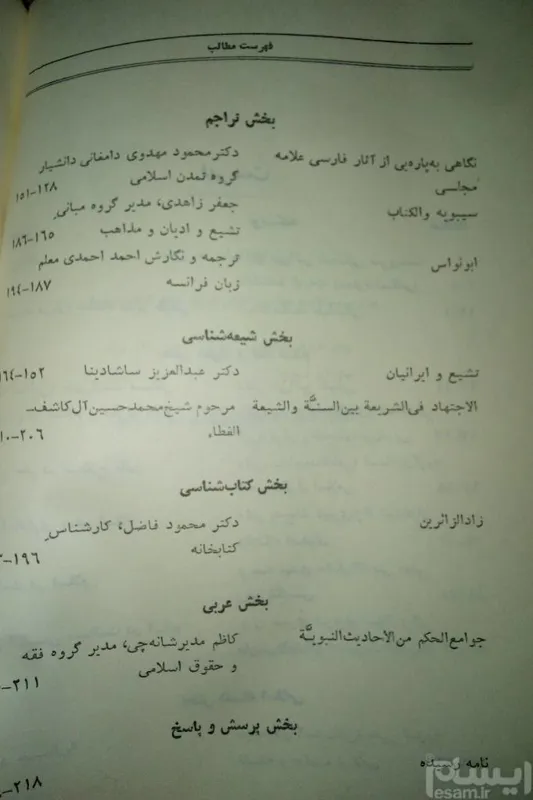 فهرست مطالب
بخش تراجم
نگاهی به پاره‌یی از آثار فارسی علامه مجلسی
دکتر محمود مهدوی دامغانی دانشیار
گروه تمدن اسلامی
۱۵۱-۱۲۸
سیبویه والکتاب
جعفر زاهدی، مدیر گروه مبانی
تشیع و ادیان و مذاهب
۱۸۶-۱۶۵
ابونواس
ترجمه و نگارش احمد احمدی معلم
زبان فرانسه
۱۹۴-۱۸۷
بخش شیعه‌شناسی
تشیع و ایرانیان
دکتر عبدالعزیز ساشادینا
۱۶۴-۱۵۲
الاجتهاد فی‌الشریعة بین‌السنَّة والشیعة
مرحوم شیخ محمدحسین آل کاشف-
الغطاء
۱۰-۲۰۶
بخش کتاب‌شناسی
زادالزائرین
دکتر محمود فاضل، کارشناس
کتابخانه
-۱۹۶
بخش عربی
جوامع‌الحکم من‌الاحادیث‌النبویَّة
کاظم مدیرشانه‌چی، مدیر گروه فقه
و حقوق اسلامی
-۲۱۱
بخش پرسش و پاسخ
نامه رسیده
-۲۱۸
ایسام
esam.ir